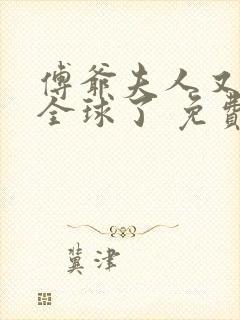 傅爺夫人又
全球了 免費
冀津